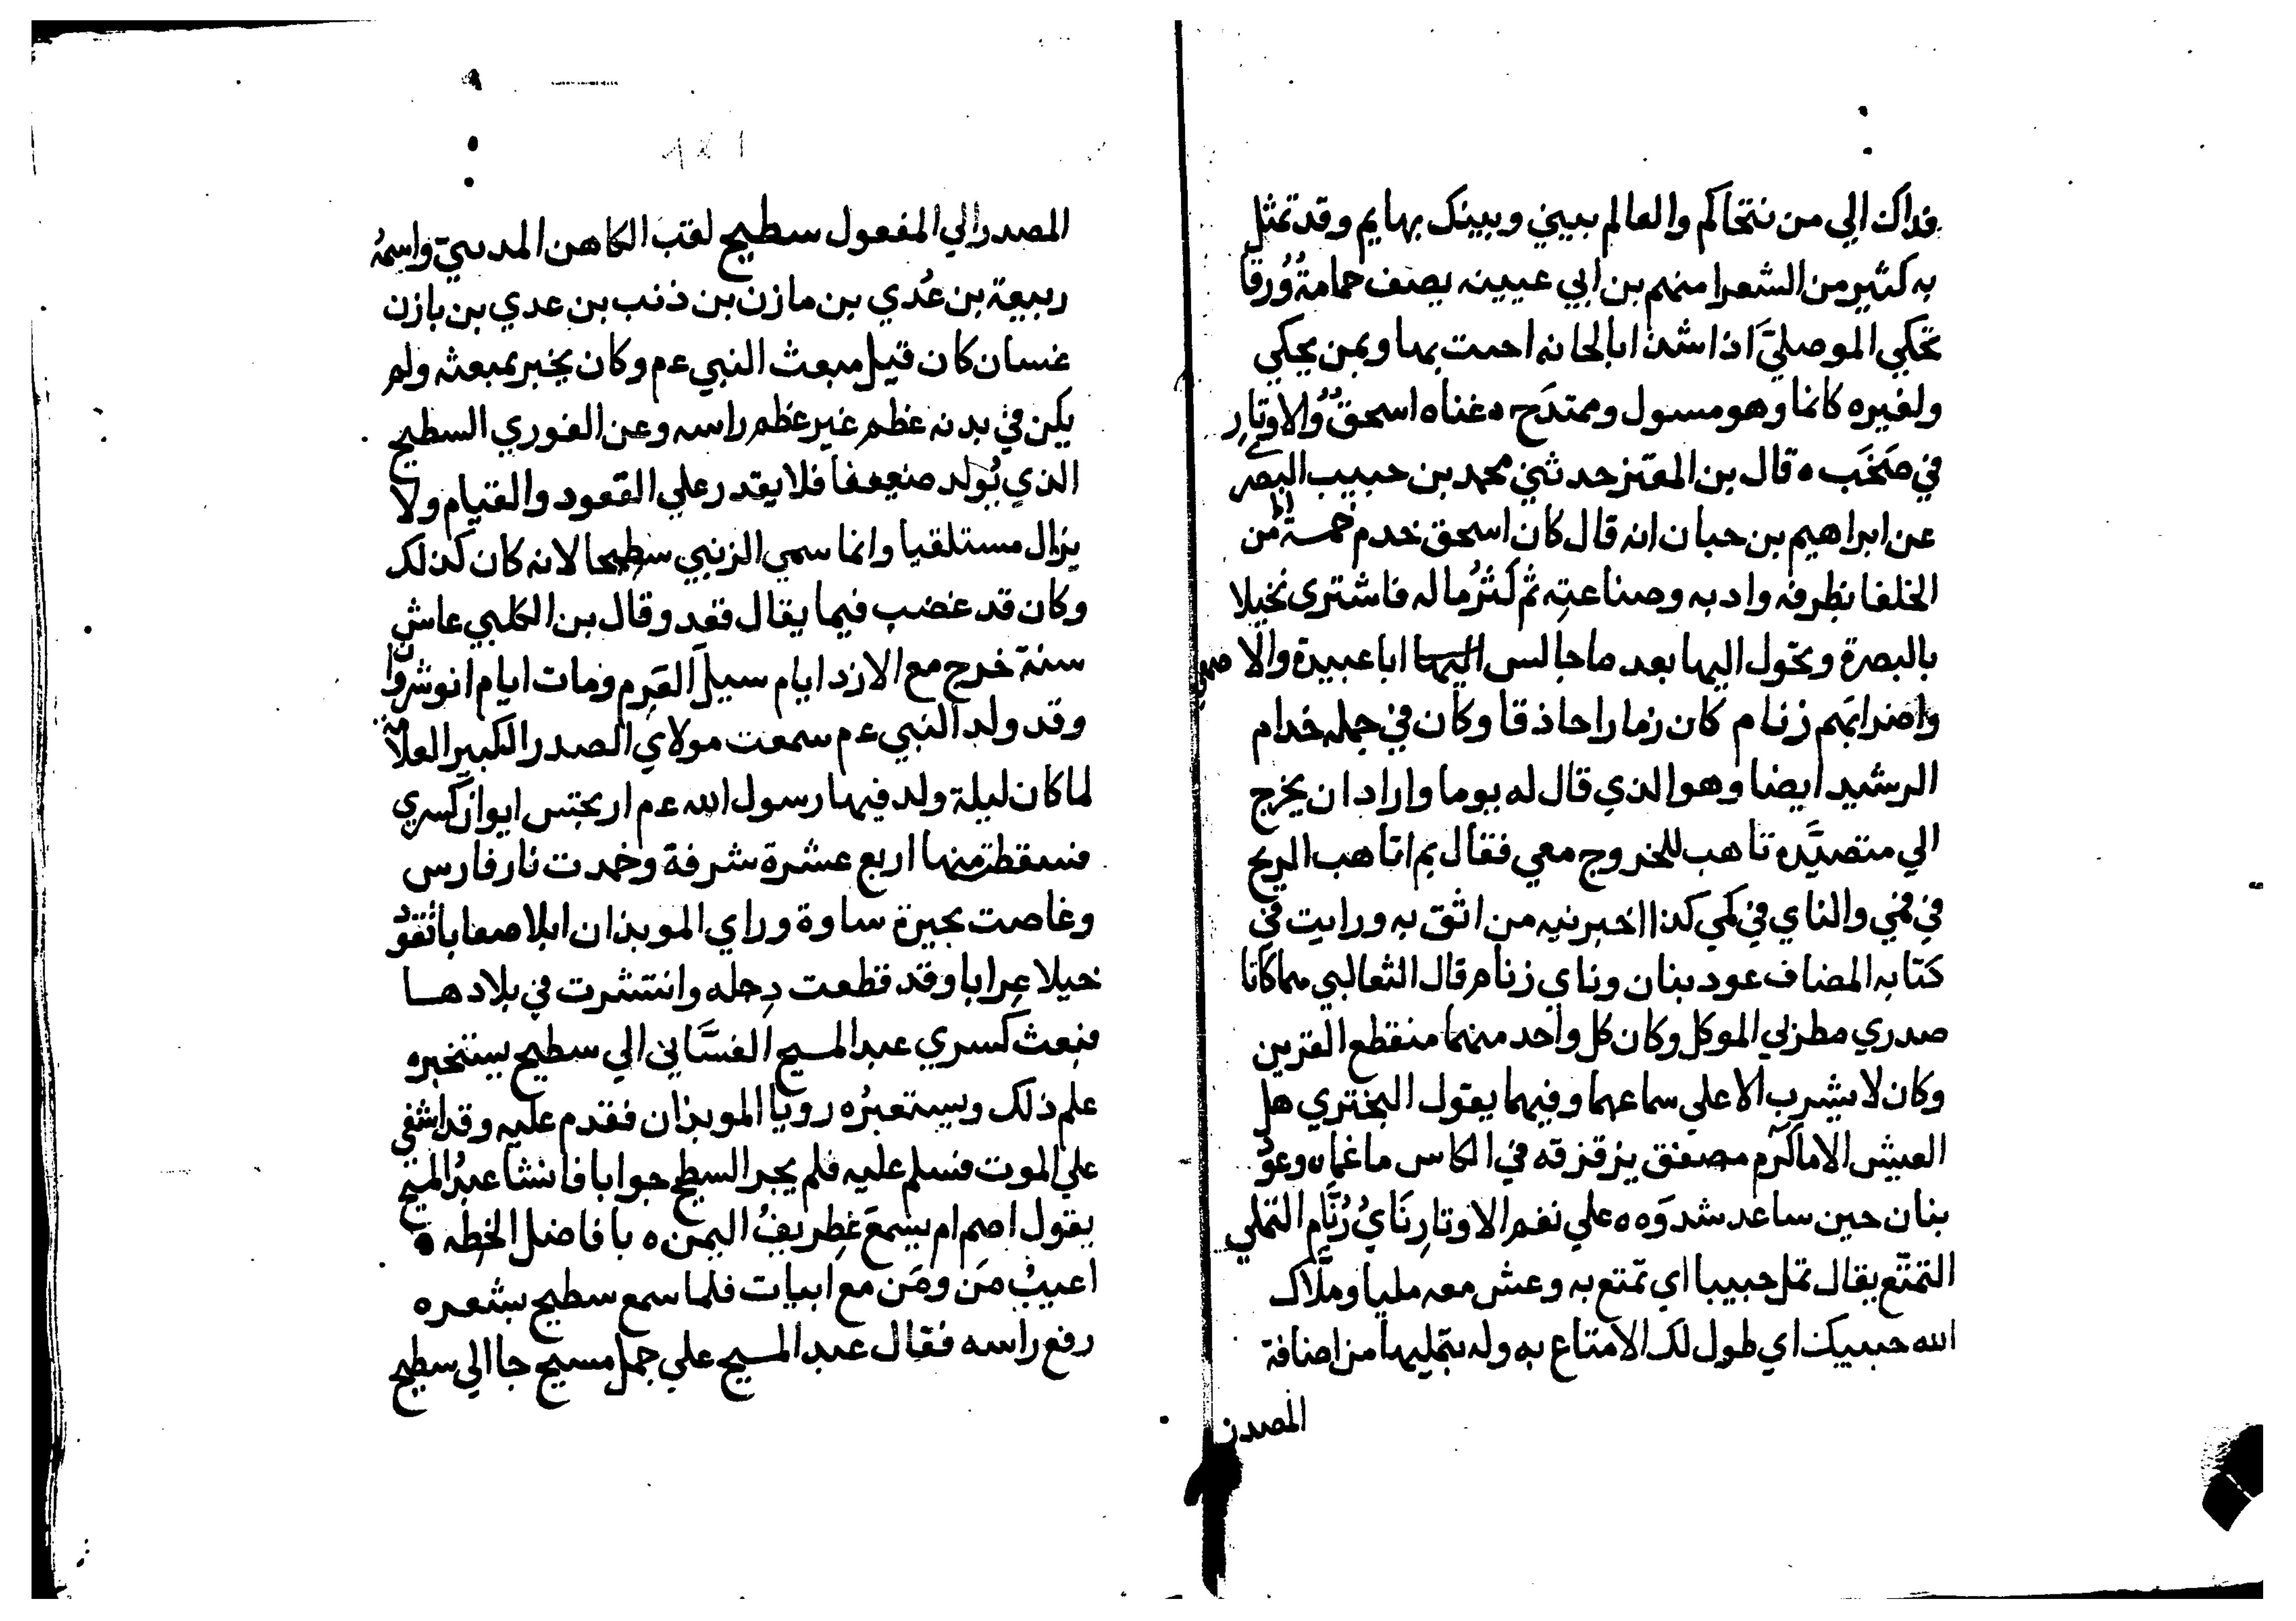 فداك الي من نتحاكم والعالم بيني وبينك بهايم وقد تمثل
به كثير من الشعرا منهم بن ابي عيينه يصف حمامة وُرقا
تحكي الموصليَّ اذا شذا بالحانه احبب بها وبمن يحكي
ولغيره كانما وهو مسول وممتدَح ه غناه اسحقٌ والاوتارِ
في صَخَب ه قال بن المعتز حدثني محمد بن حبيب البصر
عن ابراهيم بن حبان انه قال كان اسحق خدم خمسة من
الخلفا بظرفه وادبه وصناعتِه ثم كَثُرُ ماله فاشترى نخيلا
بالبصرة وتحول اليها بعد ما جالس اليها ابا عبيدة والاصمي
واضرابَهم زنام كان زمارا حاذقا وكان في جمله خدام
الرشيد ايضا وهو الذي قال له يوما واراد ان يخرج
الي متصيَّده تاهب للخروج معي فقال بم اتاهب الريح
في فمي والناي في كمي كذا اخبرنيه من اثق به ورايت في
كتابه المضاف عود بنان وناي زنام قال الثعالبي هما كانا
صدري مطربي الموكل وكان كل واحد منهما منقطع القرين
وكان لا يشرب الا علي سماعهما وفيهما يقول البختري هل
العيش الا ماكرم مصفق يزقزقه في الكاس ماغمان وعوُ
بنان حين ساعد شدوَه ه علي نغم الاوتارِ نَايُ زُنَام التملي
التمتّع يقال تمل حبيبا اي تمتع به وعش معه مليا وملّاك
الله حبيبك اي طول لك الامتاع به وله بتمليها من اضافة
المصدر
المصدر الي المفعول سطيح لقب الكاهن المدبيّ واسمهُ
ربيعة بن عُدي بن مازن بن ذنب بن عدي بن بازن
غسان كان قيل مبعث النبي ءم وكان يخبر بمبعثه ولم
يكن في بدنه عظم غير عظم راسه وعن الغوري السطيح
الذي يُولد ضعيفا فلا يقدر علي القعود والقيام ولا
يزال مستلقيا وانما سمي الزنبي سطيحا لانه كان كذلك
وكان قد غضب فيما يقال فقد وقال بن الكلبي عاش
سنة خرج مع الازد ايام سيلَ العَرِم ومات ايام انوشروان
وقد ولد النبي ءم سمعت مولاي الصدر الكبير العلامة
لما كان ليلة ولد فيها رسول الله ءم ارتجتس ايوان كسري
فسقطت منها اربع عشرة شرفة وخمدت نار فارس
وغاصت بحيرة ساوة وراي الموبذان ابلا صعابا تقود
خيلا عِرابا وقد قطعت دِجله وانتشرت في بلادها
فبعث كسري عبد المسيح الغسَّاني الي سطيح يستخبره
علم ذلك ويستعبرُه رويا الموبذان فقدم عليه وقد اشفي
علي الموت فسلم عليه فلم يجر السطيح جوابا فانشا عبدُ المسيح
يقول اصم ام يسمعَ غِطريفُ اليمن ه يا فاضل الخطه ه
اعيبُ مَن ومَن مع ابيات فلما سمع سطيح بشعره
رفع راسه فقال عبد المسيح علي جمل مسيح جا الي سطيح